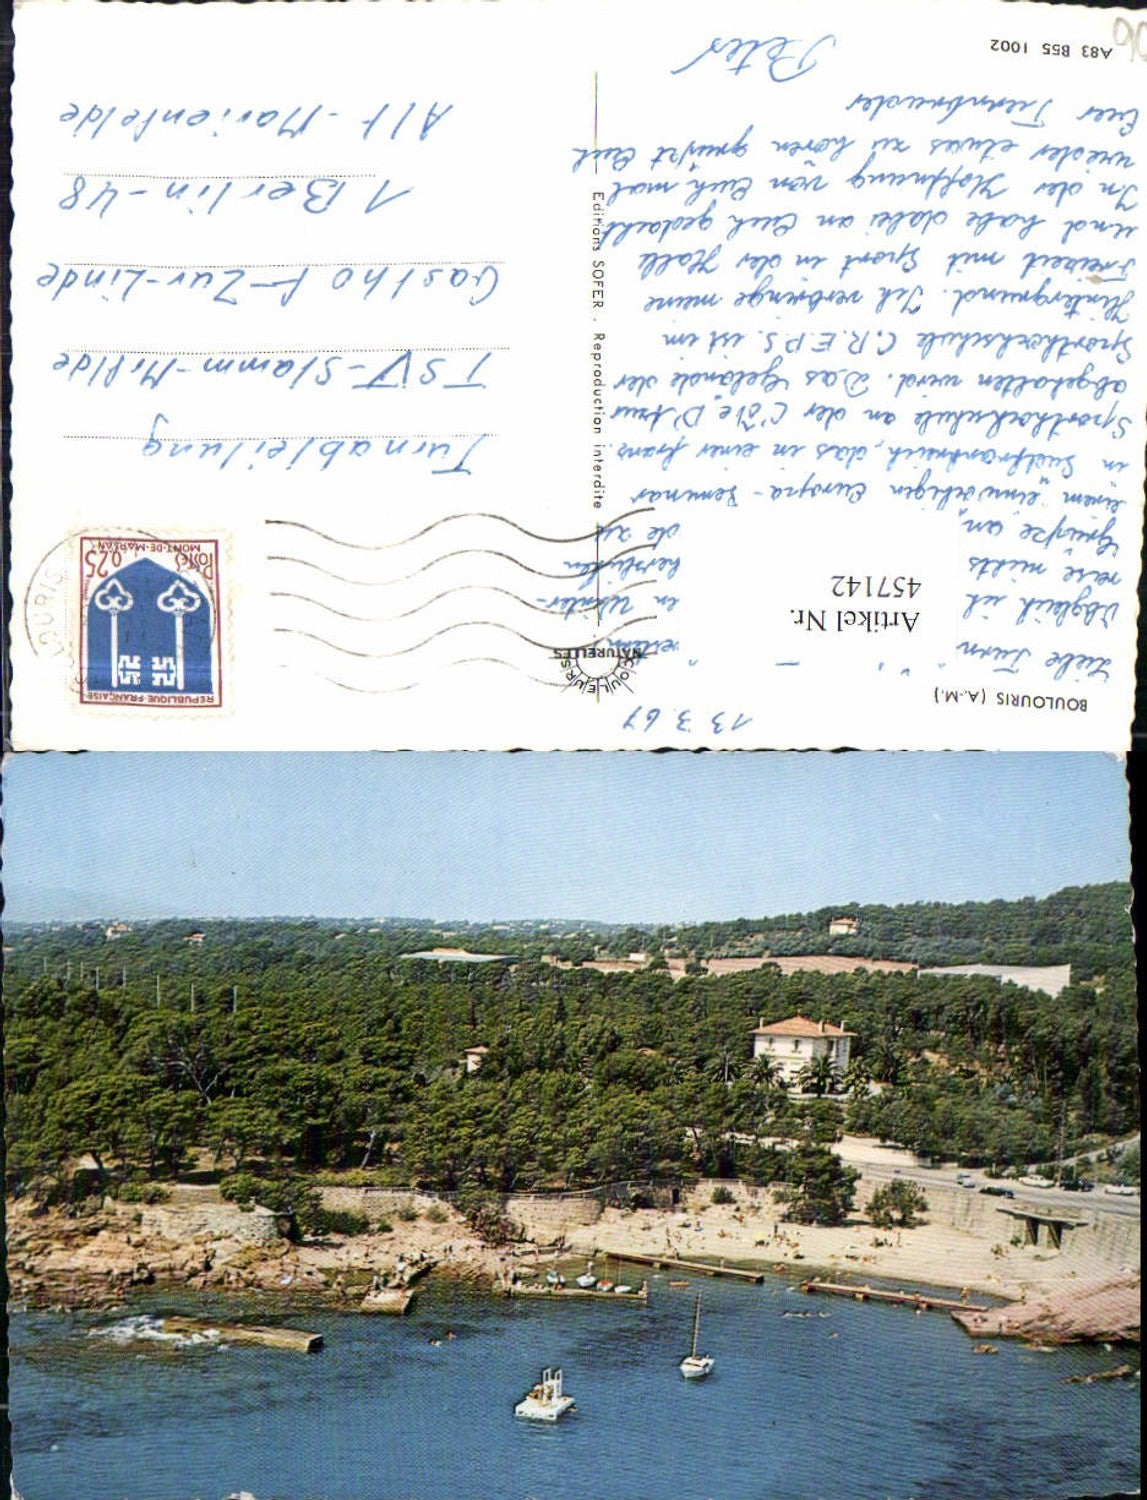 BOULOURIS (A.-M.)
13.3.67
Liebe Turn
Obgleich ich
en Winter-
reise nichts
herzlichen
Grüße an,
die zu
einem einwöchigen Europa-Seminar
in Südfrankreich, das in einer franz.
Sporthochschule an der Côte D'Azur
abgehalten wird. Das Gelände der
Sporthochschule C.R.E.P.S. ist im
Hintergrund. Ich verbringe meine
Freizeit mit Sport in der Halle
und habe dabei an Euch gedacht
In der Hoffnung von Euch mal
wieder etwas zu hören grüßt Euch
Euer Turnbruder
Peter
A83 855 1002
Artikel Nr.
457142
COULEURS
NATURELLES
Editions SOFER . Reproduction interdite
REPUBLIQUE FRANÇAISE
0,25
POSTES
MONT-DE-MARSAN
Turnabteilung
TSV-Stamm-Milde
Gasthof-Zur-Linde
1 Berlin-48
Alt-Marienfelde